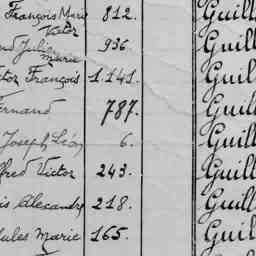 François Marie 812. Guill
Victor
Julie 936 Guill
Marie
tor François 1.141. Guill
Fernand 787. Guill
Joseph Léon 6. Guill
fred Victor 243. Guill
is Alexandre 218. Guill
Jules Marie 165. Guill